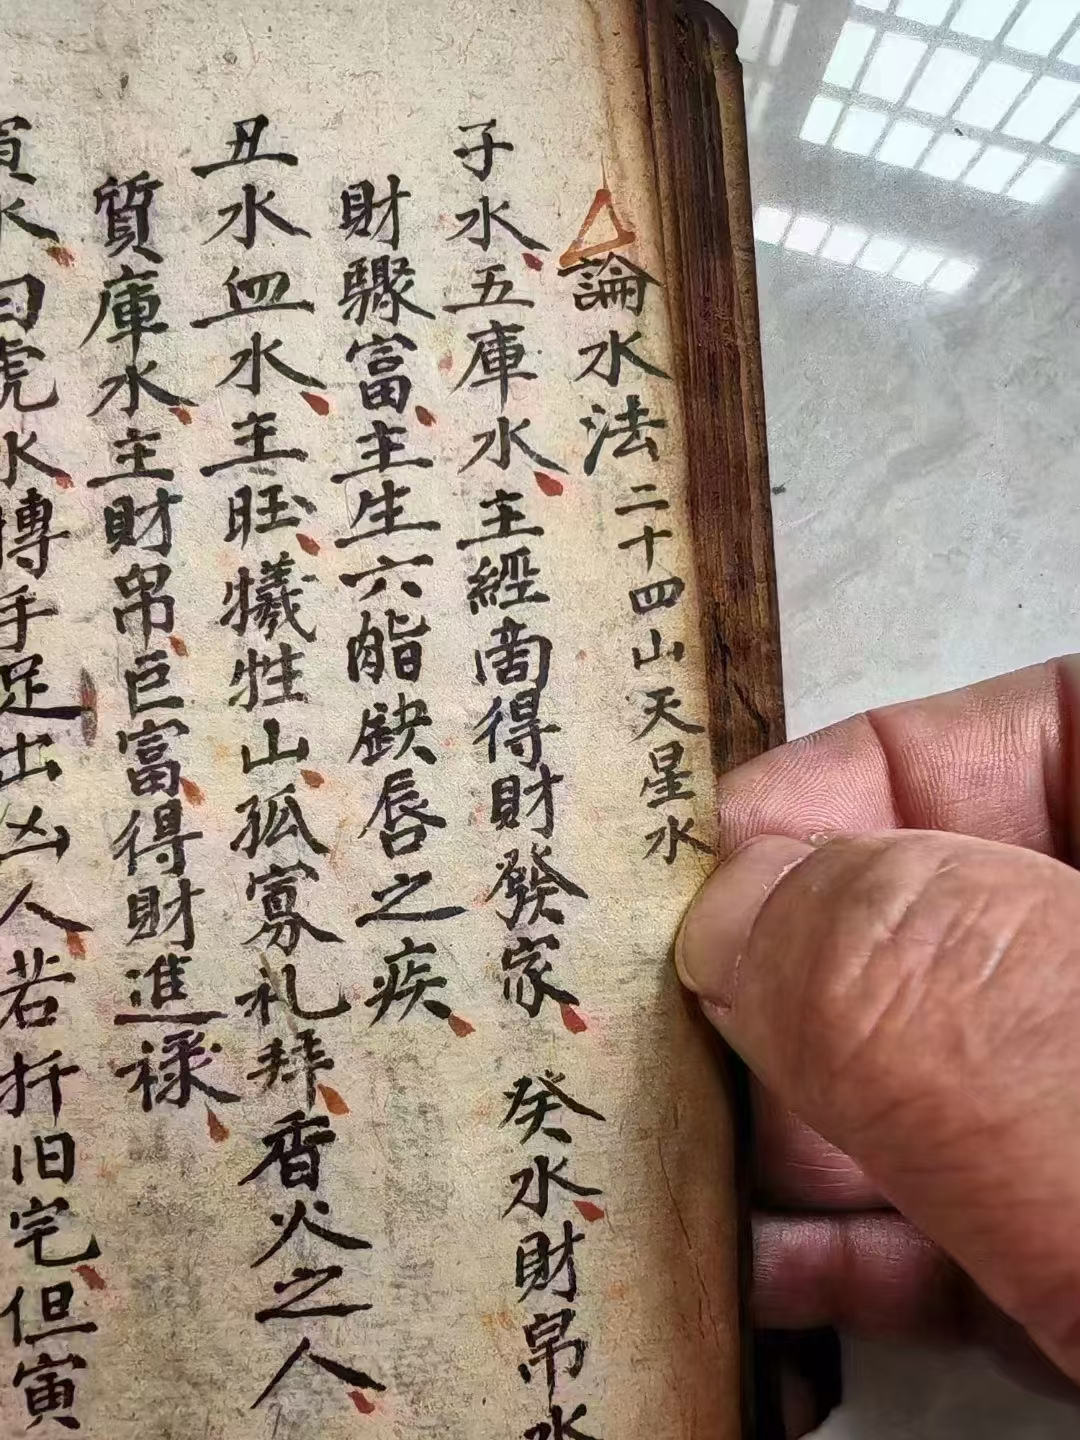 論水法二十四山天星水
子水五庫水主經商得財發家 癸水財帛水
財驟富主生六指缺唇之疾
丑水血水主旺犧牲山孤寡礼拜香火之人
質庫水主財帛巨富得財進祿
寅水曰虎水摶手足出凶人若折旧宅但寅